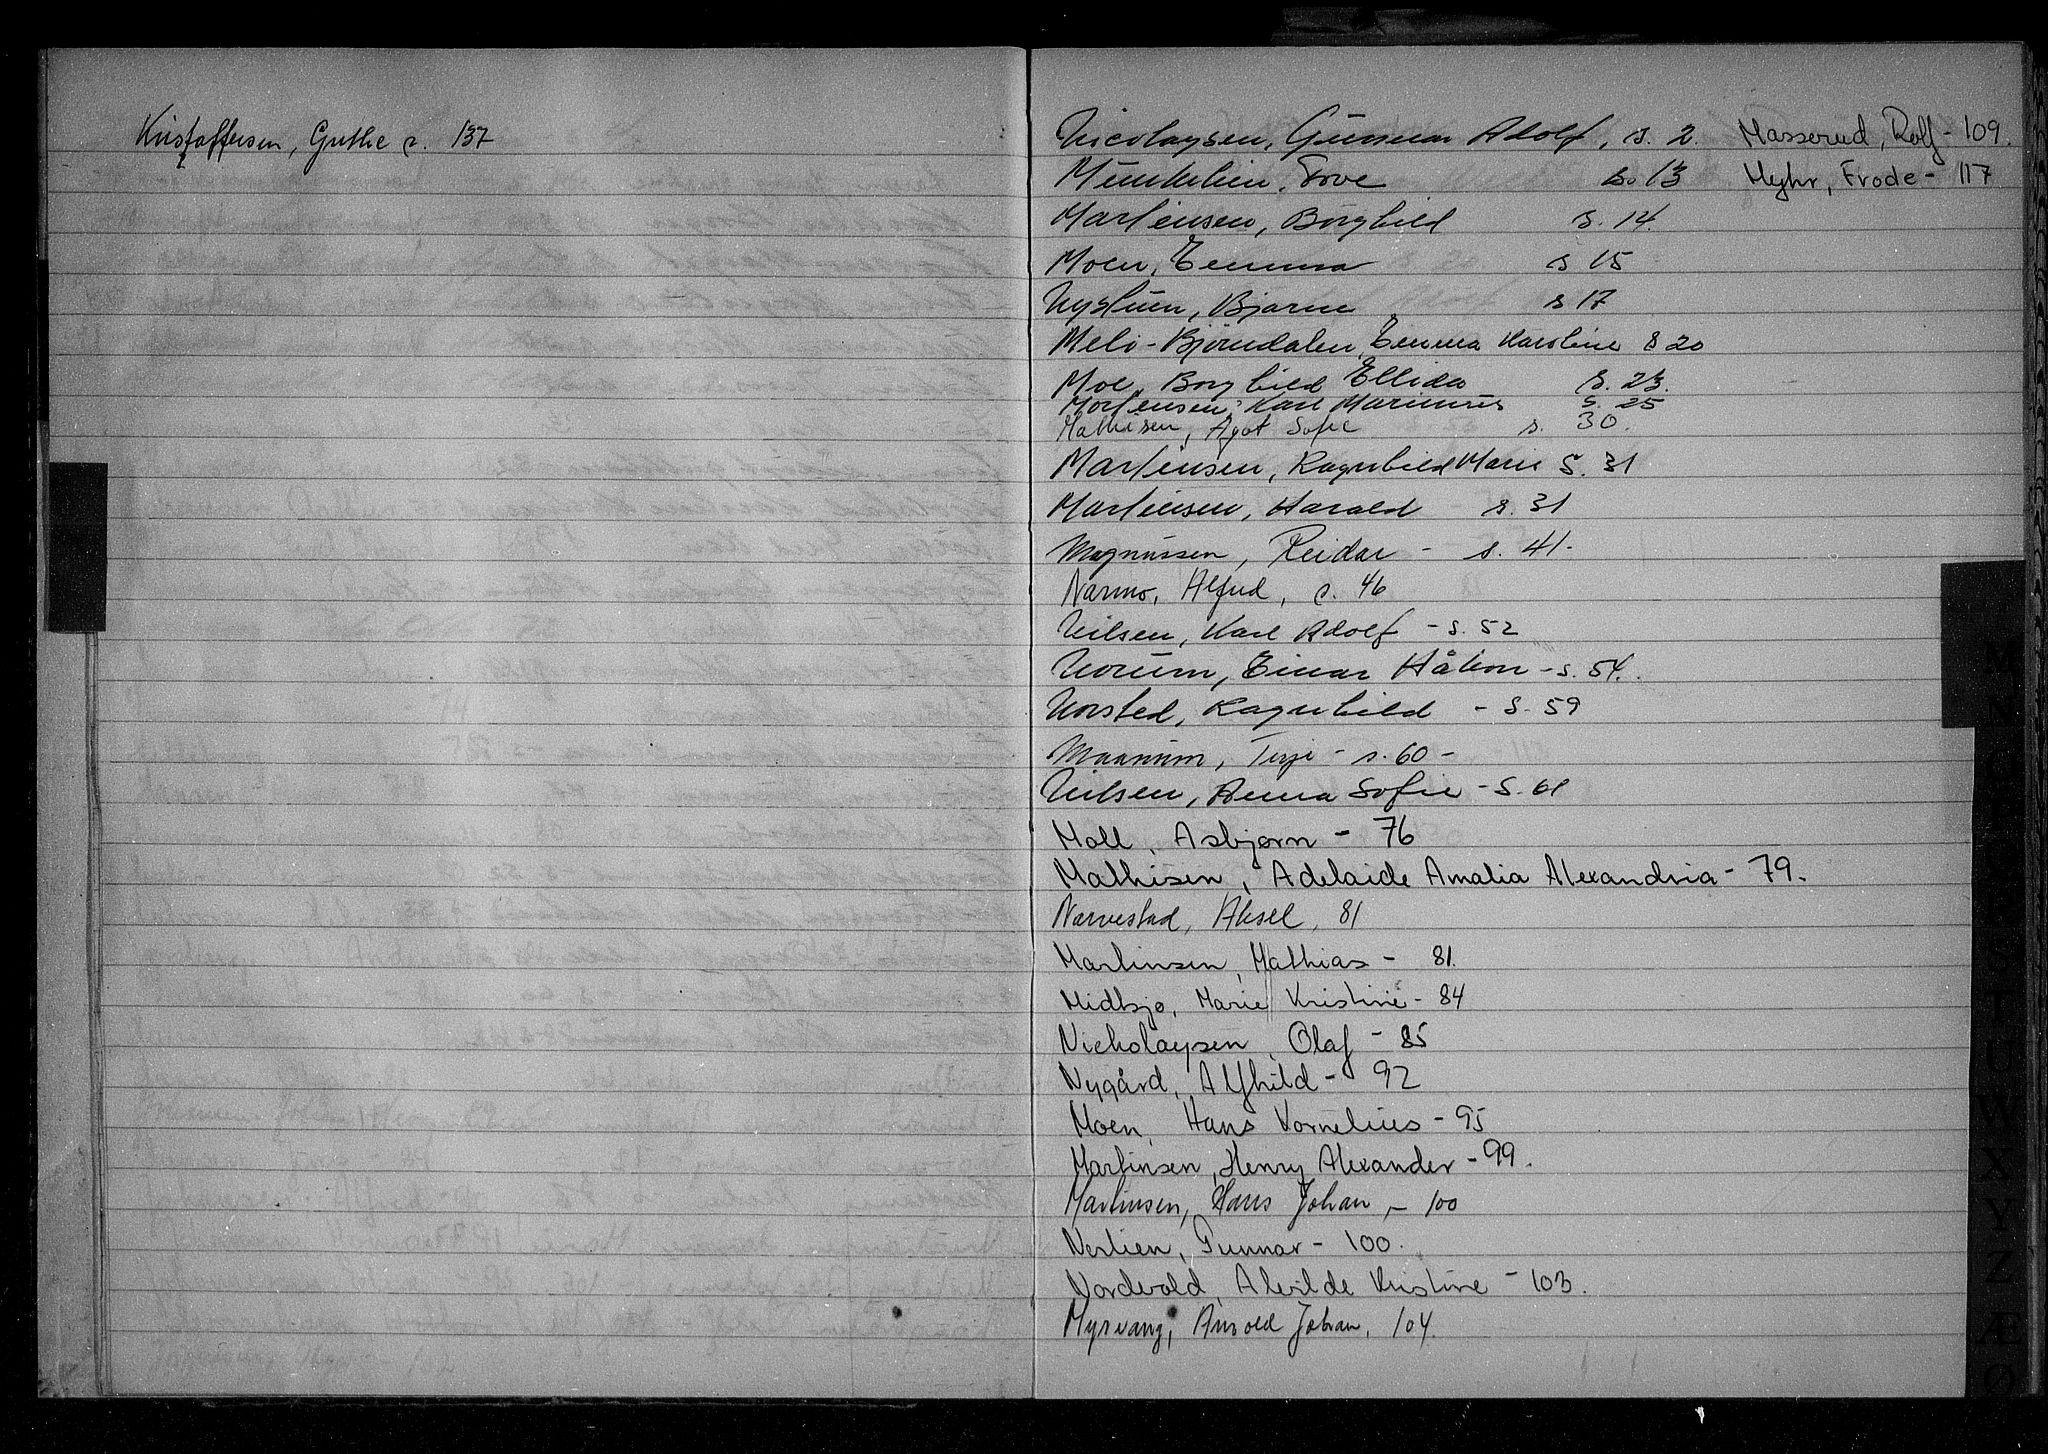 Kristoffersen, Grethe s. 137
Nicolaysen, Gunnar Adolf, s. 2.
Munkelien, Tove s. 13
Martinsen, Borghild s. 14.
Moen, Emma s 15
Nystuen, Bjarne s 17
Melö-Björndalen, Emma Karoline s 20
Moe, Borghild Ellida s. 23.
Mortensen, Karl Marinius s. 25
Mathisen, Agot Sofie s. 30.
Martinsen, Ragnhild Marie S. 31
Martinsen, Harald s. 31
Magnussen, Reidar - s. 41-
Narmo, Alfred, s. 46
Nilsen, Karl Adolf - s. 52
Norum, Einar Håkon - s. 54.
Norsted, Ragnhild - s. 59
Maanum, Terje - s. 60 -
Nilsen, Anna Sofie - S. 61
Moll, Asbjørn - 76
Mathisen, Adelaide Amalia Alexandria - 79.
Narvestad, Aksel, 81
Martinsen, Mathias - 81.
Midtsjø, Marie Kristine - 84
Nicholaysen, Olaf - 85
Nygård, Alfhild - 92
Moen, Hans Kornelius - 95
Martinsen, Henry Alexander - 99.
Martinsen, Hans Johan, - 100
Nerlien, Gunnar - 100.
Nordvold, Alvilde Kristine - 103.
Myrvang, Arnold Johan, 104.
Masserud, Rolf - 109.
Myhr, Frode - 117
M N O P
S T U W X Y Z Æ Ø